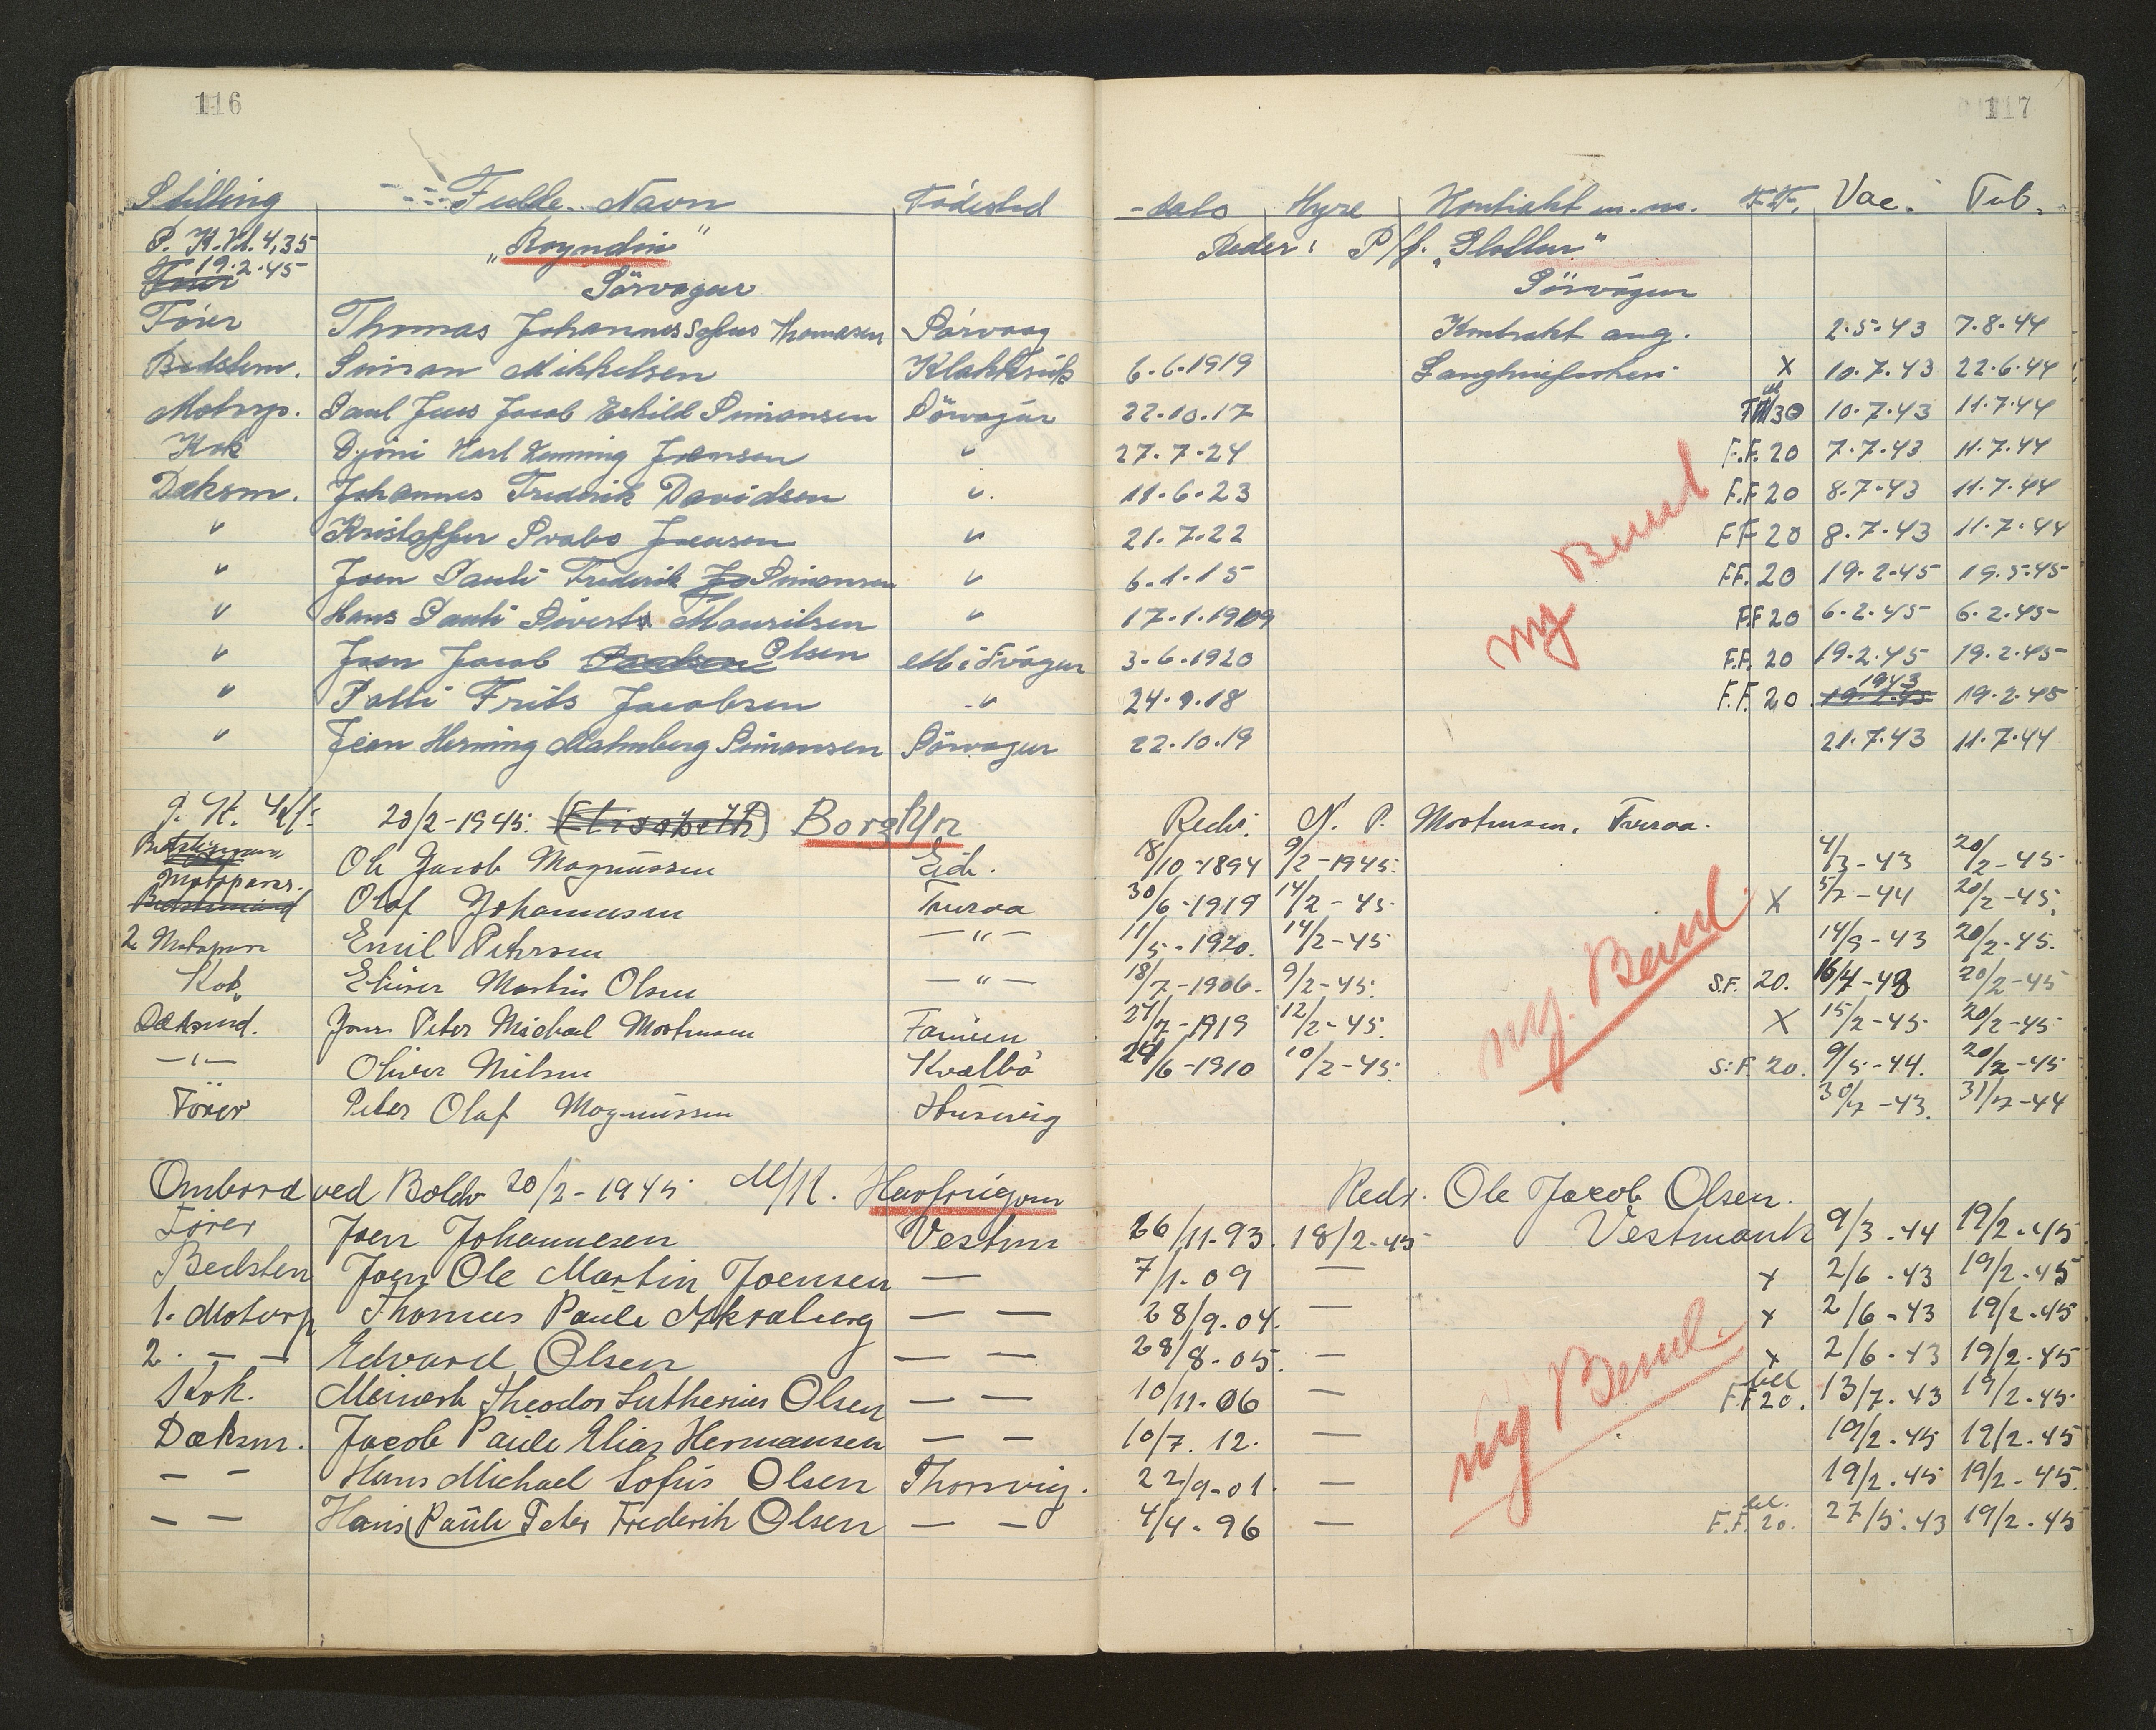 116
117
Stilling Fulde Navn Fødested -dato Hyre Kontrakt m.m. F.F. Vac. Tub.
P. K.Kl. 4,35 "Royndin" Reder: P/f. "Slottur"
19.2.45 Sörvagur Sörvágur
Fører Thomas Johannes Sofus Thomasen Sörvaag Kontrakt ang. 2.5.43 7.8.44
Bedstem. Simon Mikkelsen Klakksvik 6.6.1919 x 10.7.43 22.6.44
Motorp. Paul Jens Jacob Eskild Simonsen Sörvagur 22.10.17 10.7.43 11.7.44
Kok Djóni Karl Henning Joensen " 27.7.24 F.F. 20 7.7.43 11.7.44
Dæksm. Johannes Frederik Davidsen " 11.6.23 F.F 20 8.7.43 11.7.44
" Kristoffur Svabo Joensen " 21.7.22 FF 20 8.7.43 11.7.44
" Joen Pauli Frederik Jo Simonsen " 6.1.15 FF. 20 19.2.45 19.5.45
" Hans Pauli Sivert Mouritsen " 17.1.1909 F.F 20 6.2.45 6.2.45
" Joen Jacob Poulsen Olsen Miðvágur 3.6.1920 F.F. 20 19.2.45 19.2.45
" Palli Frits Jacobsen " 24.9.18 F.F. 20 19.2.45 1943 19.2.45
" Jean Henning Malmberg Simonsen Sörvagur 22.10.19 21.7.43 11.7.44
ny Bemd
20/2-1945. (Elisabeth) Borglyn Reder. N. P. Mortensen, Furoa.
Bedstemand Ole Jacob Magnussen Eide. 18/10-1894 9/2-1945. 4/3-43 20/2-45
Motorpasser. Bedstemand Olaf Johannesen Furoa 30/6-1919 14/2-45 X 5/7-44 20/2-45.
2 Motorpasser Emil Petersen —"— 11/5-1920. 14/2-45 14/9-43 20/2-45.
Kok Eliser Martin Olsen —"— 18/7-1906. 9/2-45. S.F. 20. 16/4-43 20/2-45
Dæksmd. Jens Peter Michael Mortensen Famien 24/7-1919 12/2-45. X 15/2-45. 20/2-45
—"— Oliver Nielsen Kvalbö 24/6-1910 10/2-45. S.F. 20. 9/5-44. 20/2-45
Förer Peter Olaf Magnussen Husevig 30/7-43. 31/7-44
ny. Bemd.
Ombord ved Boldv 20/2-1945 M/K. Havfrúgvin Redr. Ole Jacob Olsen.
Fører Joen Johannesen Vestm 26/11-93. 18/2-45 Vestmanh 9/3.44 19/2.45
Bedsten Joen Ole Martin Joensen — 7/1.09 — x 2/6.43 19/2.45
1. Motorp Thomas Paule Skraberg — — 28/9.04. — x 2/6-43 19/2.45
2. — — Edvard Olsen — — 28/8-05. — x 2/6.43 19/2.45
Kok. Meinert Theodor Lutherius Olsen — — 10/11.06 — F.F 20. 13/7.43 19/2.45
Dæksm. Jacob Paule Elias Hermansen — — 10/7.12. — 19/2.45 19/2.45
— — Hans Michael Sofus Olsen Thorsvig. 22/9-01. — 19/2.45 19/2-45.
— — Hans Paule Peter Frederik Olsen — — 4/4-96 — F.F. 20. 27/5.43 19/2.45
ny Bemd.